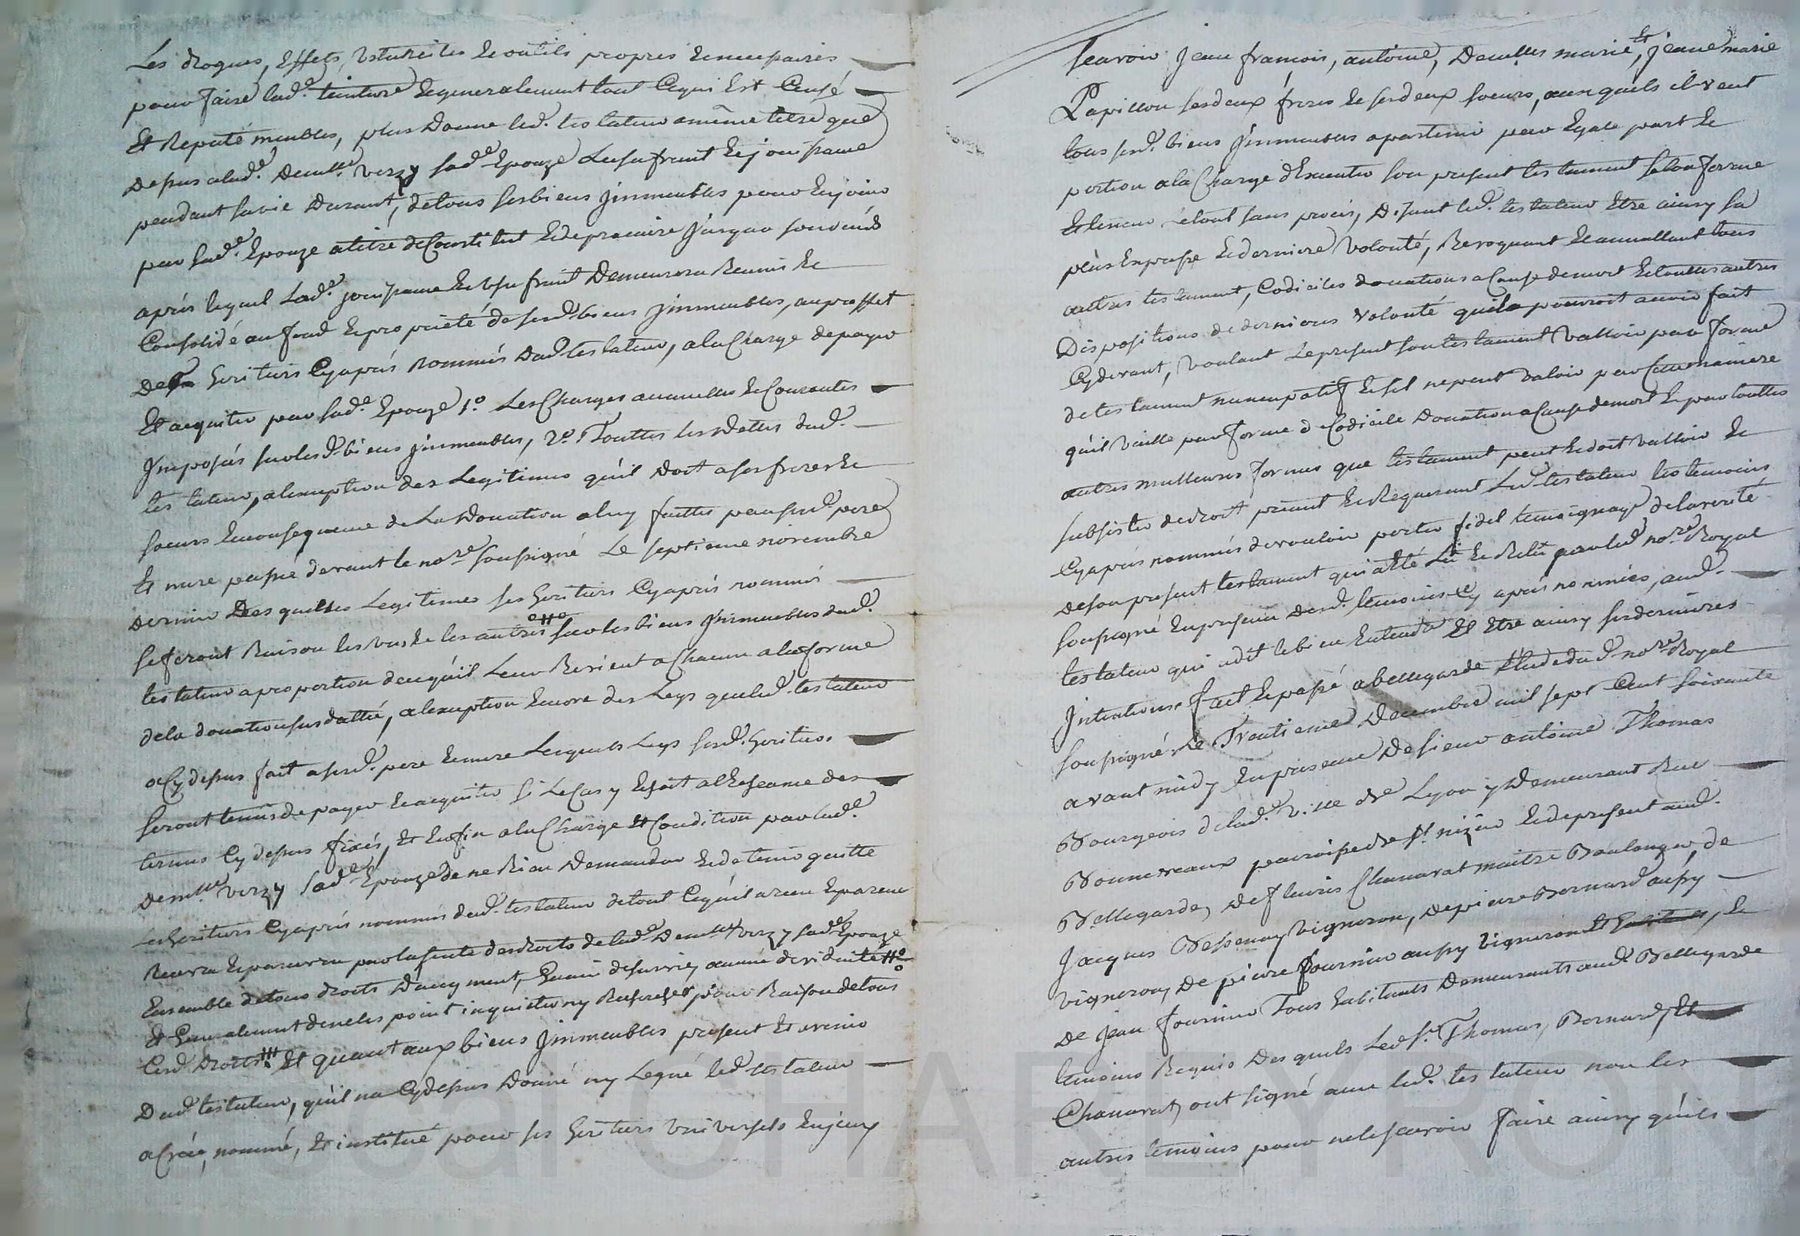 Les drogues, Effets, Ustencilles & outils propres & necessaires
pour faire lad.e teinture & generalement tout Cequi Est Censé
Et Reputé meubles, plus Donne led. testateur a même titre que
Depus a lad.e Dem.lle Verzy sad.e Epouze Lusufruit & jouissance
pendant savie Durant, de tous ses biens jmmeubles pour En joüir
par sad.e Epouze a titre de Constitut & de precaire jusqua son deced
après lequel Lad.e jouissance & Usufruit Demeurera Reunis &
Consolidé au fond & proprieté de sesd. biens jmmeubles, auproffit
de ses heritiers Cyaprès nommés Dud. testateur, alaCharge depayer
Et acquiter par sad.e Epouze 1.o Les Charges annuelles & Courantes
jmposés sur lesd. biens jmmeubles, 2.o Touttes les dettes dud.
testateur, alexception des Legitimes qu'il Doit a ses freres &
soeurs En consequence de La Donation a luy faitte par sesd. pere
& mere passé devant le no.re soussigné Le septieme novembre
dernier Desquelles Legitimes ses heritiers Cyaprès nommés
se feront Raison les uns & les autres sur les biens jmmeubles dud.
testateur a proportion de cequ'il Leur Revient a Chacun a la forme
de la donation susdattée, alexception Encore des Legs que led. testateur
a Cydessus fait a sesd. pere & mere Lesquels Legs sesd. heritiers
seront tenus de payer & acquiter si Le Cas y Echoit al Echeance des
termes Cydessus fixés, Et Enfin a la Charge Et Condition par lad.e
Dem.lle Verzy sad.e Epouze de ne Rien Demander & de tenir quitte
Les heritiers Cyaprès nommés dud. testateur de tout Cequ'il a reçu
Recevra & pourra pour la suitte des droits de lad.e Dem.lle Verzy sad.e Epouze
Ensemble de tous droits Daugment, Gain de survie,
Et Generalement de ne les point inquieter ny Rechercher pour Raison de tous
Cesd. Droits. Et quant aux biens jmmeubles present Et avenir
Dud. testateur, qu'il na Cydessus Donné ny Legué led. testateur
a Créé, nommé, Et institué pour ses heritiers Universels
Scavoir Jean françois, antoine, Dem.lles marie, & jeanne marie
Papillon ses deux freres & ses deux soeurs, auxquels il veut
tous sesd. biens jmmeubles apartenir par Egale part &
portion a la Charge d'Executer son present testament selon sa forme
& teneur Letout sans procès, Disant led. testateur Etre ainsy sa
plus Expresse & derniere Volonté, Revoquant & annullant tous
autres testament, Codiciles donations a Cause de mort & touttes autres
Dispositions de derniere Volonté quil pourroit avoir fait
Cydevant, Voulant Le present son testament Valloir par forme
de testament nuncupatif & sil ne peut Valoir par Cette maniere
qu'il Vaille par forme de Codicile Donation a Cause de mort & par touttes
autres meilleures formes que testament peut & doit Valloir &
subsister de droit priant & Requerant Led. testateur les temoins
Cyaprès nommés de vouloir porter fidel temoignage de la verité
de son present testament qui a Eté Lû & Relû par led. no.re Royal
soussigné En presence desd. temoins Cy après nommés, aud.
testateur qui a dit le bien Entendre Et Etre ainsy ses dernieres
Intentions. fait & passé a bellegarde Etude dud. no.re Royal
soussigné Le Trentieme Decembre mil sept Cent soixante
avant midy En presence de sieur antoine Thomas
Bourgeois de lad.e Ville de Lyon y Demeurant Rue
Bonneveaux parroisse de s.t nizier & de present aud.
Bellegarde, de fleuris Chanarat maitre Boulanger, de
Jacques Bessenay Vigneron, de pierre Bernard aussy
Vigneron, De pierre fournier aussy Vigneron, &
De jean fournier Tous habitants Demeurants aud. Bellegarde
temoins Requis Desquels Led. s.r Thomas, Bernard, Et
Chanarat, ont signé avec led. testateur non les
autres temoins pour ne le scavoir faire ainsy qu'ils